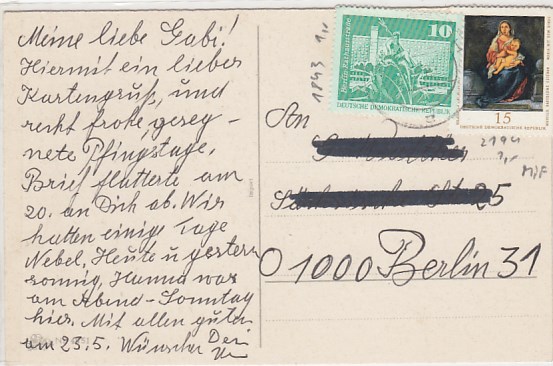 Meine liebe Gabi!
Hiermit ein lieber
Kartengruß, und
recht frohe, geseg-
nete Pfingstage,
Brief flatterte am
20. an Dich ab. Wir
hatten einige Tage
Nebel, Heute u gestern
sonnig, Hanna war
am Abend-Sonntag
hier. Mit allen guten
am 23.5. Wünschen Dein
10
Berlin, Rathausstraße
DEUTSCHE DEMOKRATISCHE REPUBLIK
1843 1,-
15
DEUTSCHE DEMOKRATISCHE REPUBLIK
2194
1,-
MiF
An
Str. 25
O 1000 Berlin 31